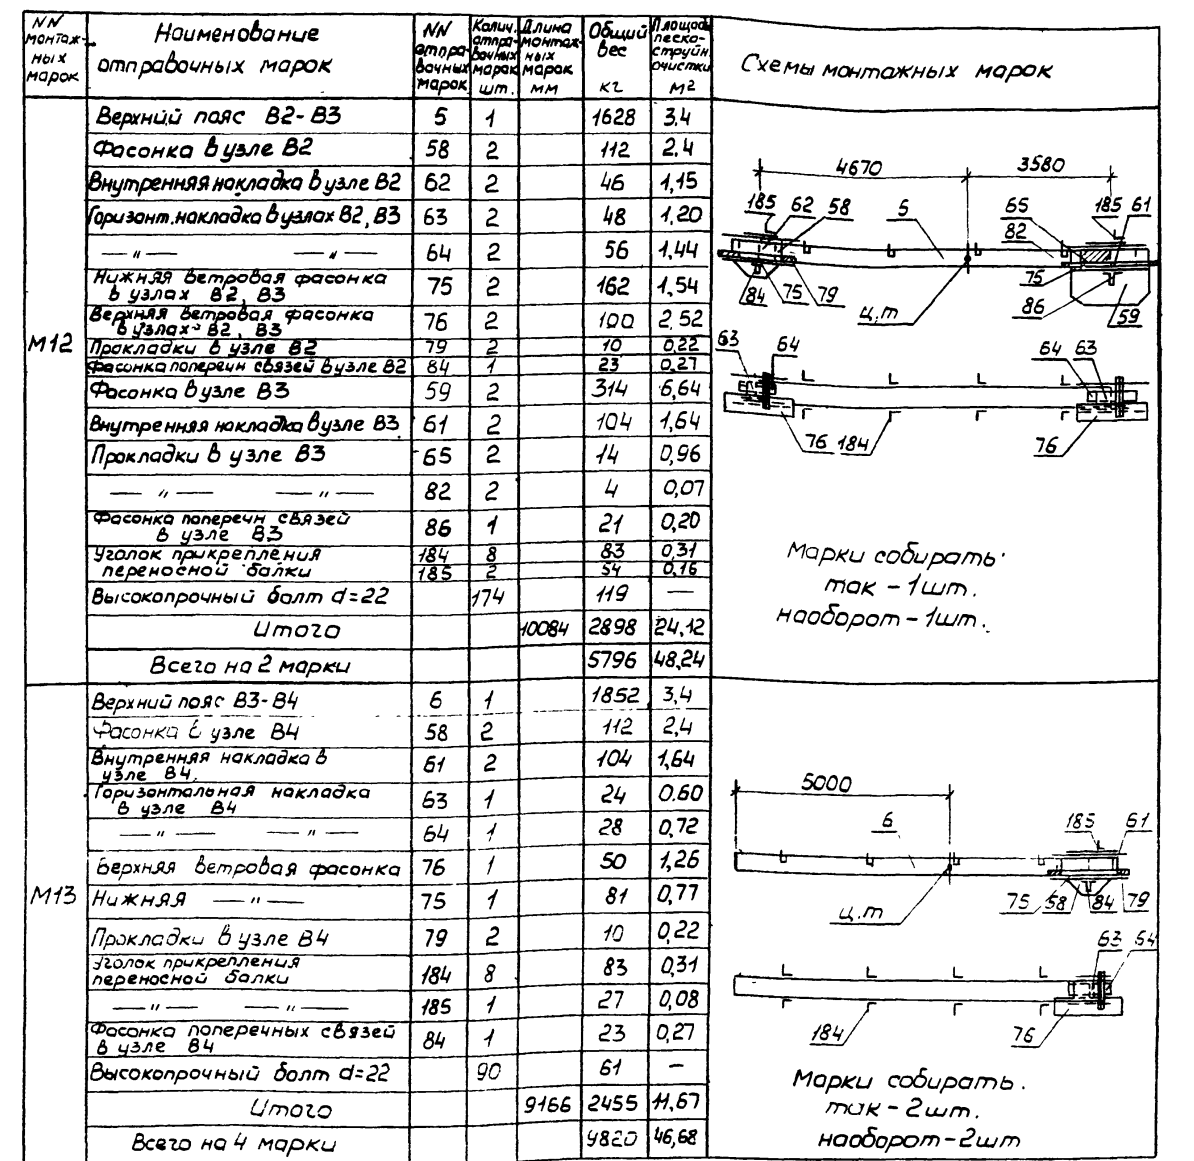 NN монтаж- ных марок
Наименование отправочных марок
NN отпра- вочных марок
Колич. отпра- вочных марок шт.
Длина монтаж- ных марок мм
Общий вес кг
Площадь песко- струйн. очистки м2
Схемы монтажных марок
М12
Верхний пояс В2-В3 5 1 1628 3,4
Фасонка в узле В2 58 2 112 2,4
Внутренняя накладка в узле В2 62 2 46 1,15
Горизонт. накладка в узлах В2, В3 63 2 48 1,20
— " — — " — 64 2 56 1,44
Нижняя ветровая фасонка
в узлах В2, В3 75 2 162 1,54
Верхняя ветровая фасонка
в узлах В2, В3 76 2 100 2,52
Прокладки в узле В2 79 2 10 0,22
Фасонка поперечн связей в узле В2 84 1 23 0,27
Фасонка в узле В3 59 2 314 6,64
Внутренняя накладка в узле В3 61 2 104 1,64
Прокладки в узле В3 65 2 14 0,96
— " — — " — 82 2 4 0,07
Фасонка поперечн связей
в узле В3 86 1 21 0,20
Уголок прикрепления 184 8 83 0,31
переносной балки 185 2 54 0,16
Высокопрочный болт d=22 174 119 —
Итого 10084 2898 24,12
Всего на 2 марки 5796 48,24
4670 3580
185 62 58 5 65 185 61
82
84 75 79 ц.т 75 86 59
63 64 64 63
76 184 76
Марки собирать
так - 1шт.
наоборот - 1шт.
М13
Верхний пояс В3-В4 6 1 1852 3,4
Фасонка в узле В4 58 2 112 2,4
Внутренняя накладка в
узле В4. 61 2 104 1,64
Горизонтальная накладка
в узле В4 63 1 24 0.60
— " — — " — 64 1 28 0,72
Верхняя ветровая фасонка 76 1 50 1,26
Нижняя — " — 75 1 81 0,77
Прокладки в узле В4 79 2 10 0,22
Уголок прикрепления
переносной балки 184 8 83 0,31
— " — — " — 185 1 27 0,08
Фасонка поперечных связей
в узле В4 84 1 23 0,27
Высокопрочный болт d=22 90 61 —
Итого 9166 2455 11,67
Всего на 4 марки 9820 46,68
5000
6 185 61
ц.т 75 58 84 79
63 64
184 76
Марки собирать.
так - 2шт.
наоборот - 2шт